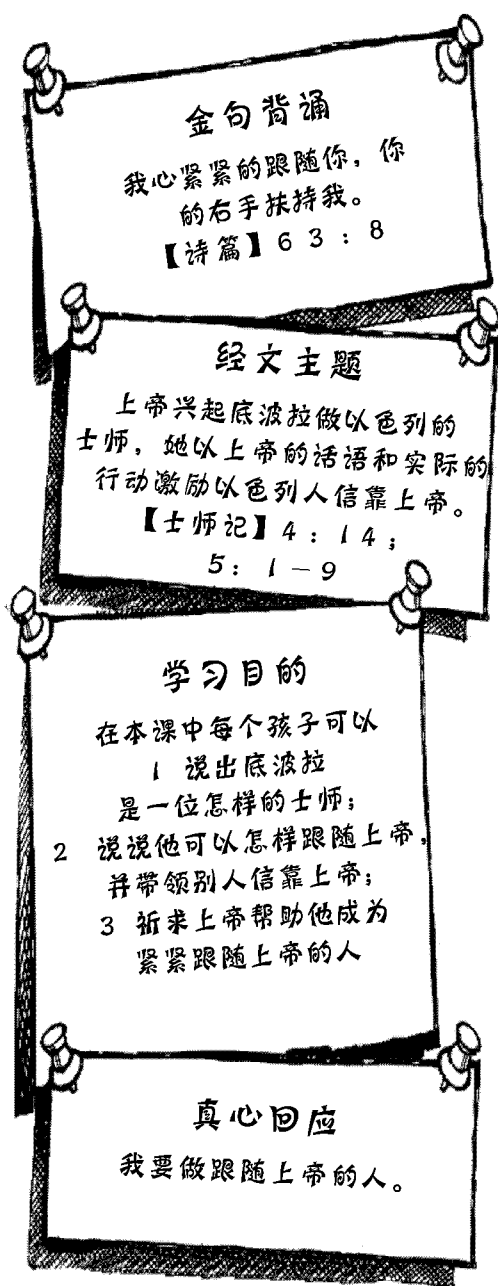 金句背诵
我心紧紧的跟随你，你
的右手扶持我。
【诗篇】63:8
经文主题
上帝兴起底波拉做以色列的
士师，她以上帝的话语和实际的
行动激励以色列人信靠上帝。
【士师记】4:14；
5:1-9
学习目的
在本课中每个孩子可以
1 说出底波拉
是一位怎样的士师；
2 说说他可以怎样跟随上帝，
并带领别人信靠上帝；
3 祈求上帝帮助他成为
紧紧跟随上帝的人
真心回应
我要做跟随上帝的人。